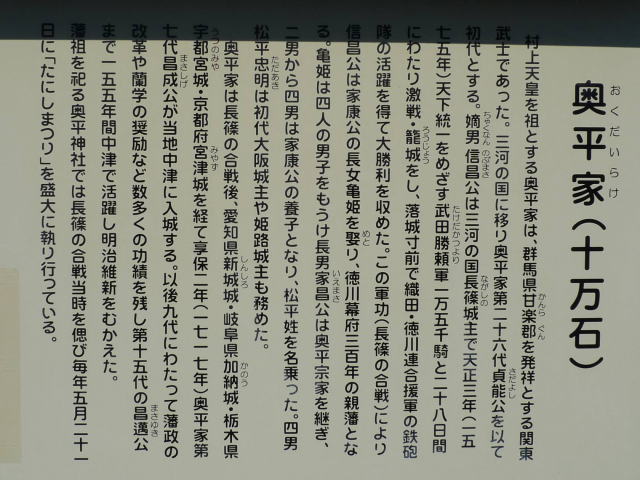 奥平家(十万石)
おくだいらけ
村上天皇を祖とする奥平家は、群馬県甘楽郡を発祥とする関東
かんら ぐん
武士であった。三河の国に移り奥平家第二十六代貞能公を以て
さだよし
初代とする。嫡男 信昌公は三河の国長篠城主で天正三年(一五
ちゃくなん のぶまさ ながしの
七五年)天下統一をめざす武田勝頼軍一万五千騎と二十八日間
たけだかつより
にわたり激戦・籠城をし、落城寸前で織田・徳川連合援軍の鉄砲
ろうじょう
隊の活躍を得て大勝利を収めた。この軍功(長篠の合戦)により
信昌公は家康公の長女亀姫を娶り、徳川幕府三百年の親藩とな
めと
る。亀姫は四人の男子をもうけ長男家昌公は奥平宗家を継ぎ、
いえまさ
二男から四男は家康公の養子となり、松平姓を名乗った。四男
松平忠明は初代大阪城主や姫路城主も務めた。
ただあき
奥平家は長篠の合戦後、愛知県新城城・岐阜県加納城・栃木県
しんしろ かのう
宇都宮城・京都府宮津城を経て享保二年(一七一七年)奥平家第
うつのみや みやず
七代昌成公が当地中津に入城する。以後九代にわたって藩政の
まさしげ
改革や蘭学の奨励など数多くの功績を残し第十五代の昌邁公
まさゆき
まで一五五年間中津で活躍し明治維新をむかえた。
藩祖を祀る奥平神社では長篠の合戦当時を偲び毎年五月二十一
日に「たにしまつり」を盛大に執り行っている。